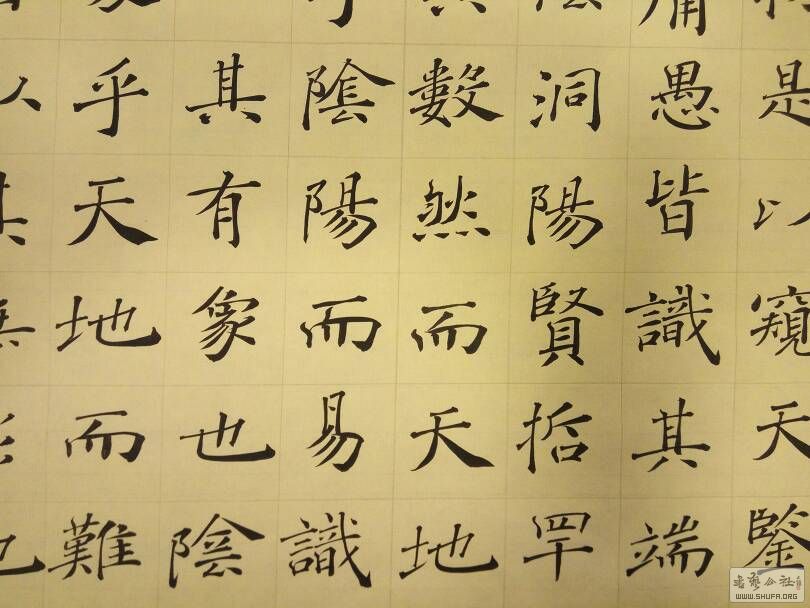 是以窺天鑒
庸愚皆識其端
陰洞陽賢哲罕
其數然而天地
乎陰陽而易識
其有象也陰
乎天地而難
其無形也
WWW.SHUFA.ORG